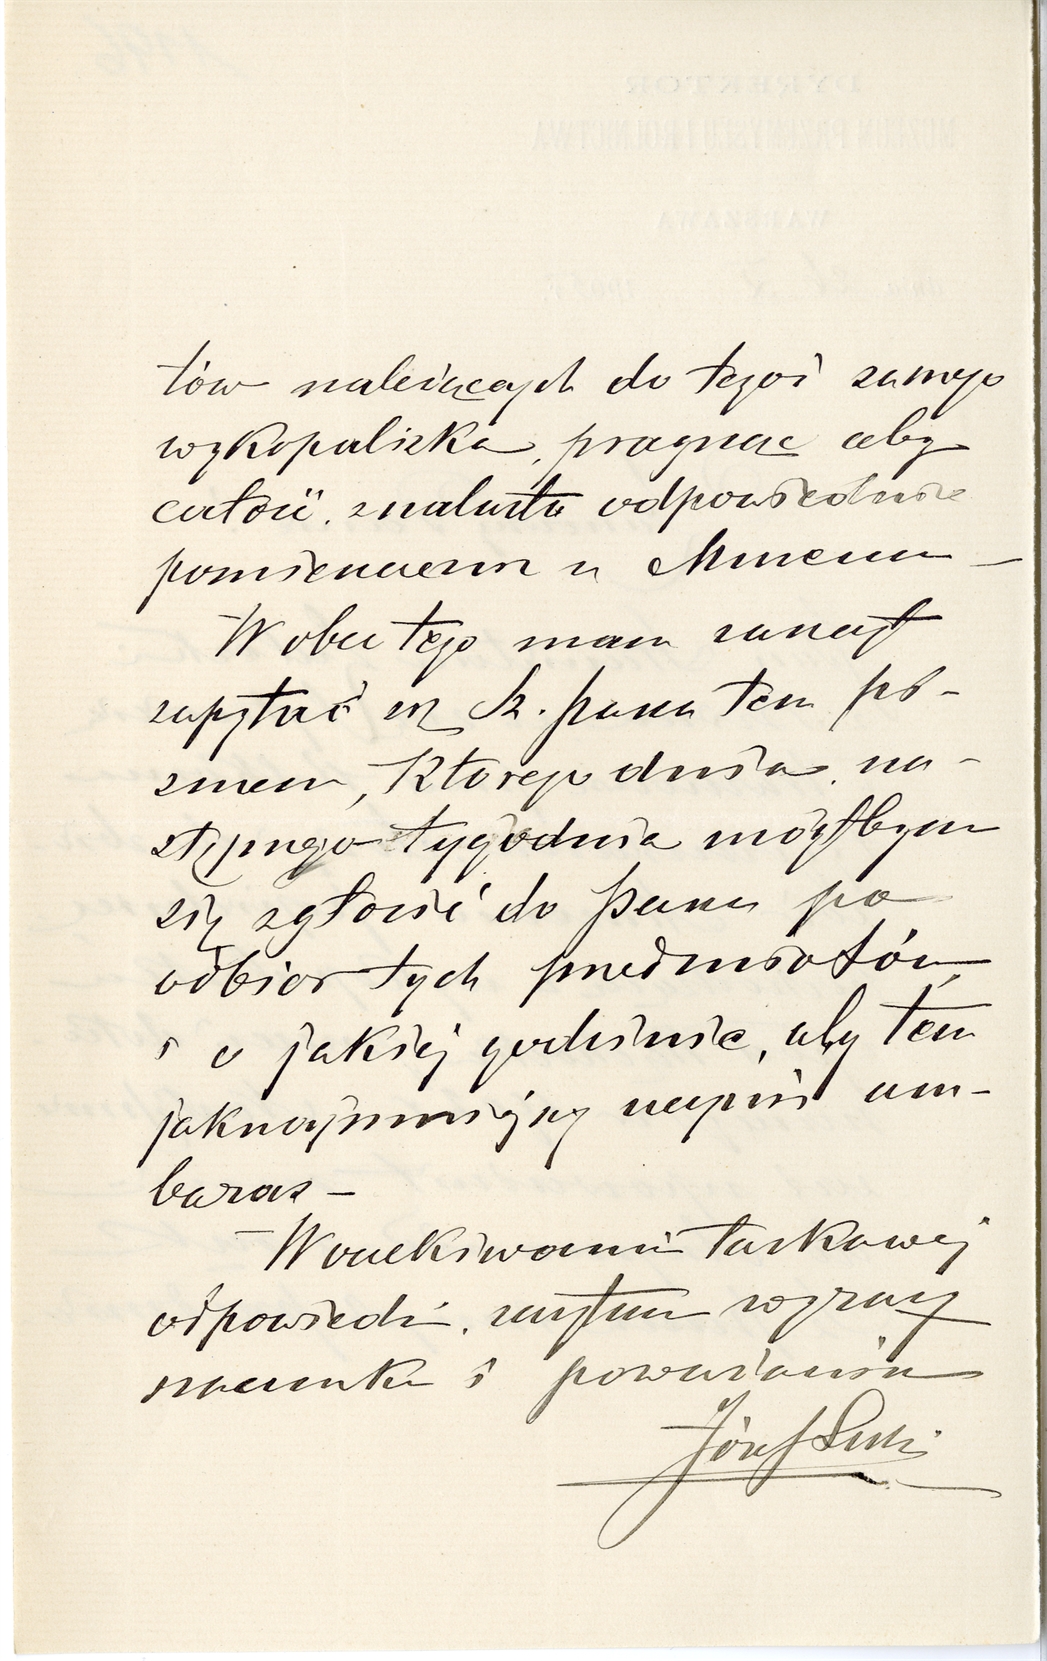 tów należących do tegoż samego
wykopaliska, pragnąc aby
całość znalazła odpowiednie
pomieszczenie w Muzeum —
Wobec tego mam zaszczyt
zapytać się Sz. pana tem pi-
smem, którego dnia na-
stępnego tygodnia mógłbym
się zgłosić do Pana po
odbior tych przedmiotów,
i o jakiej godzinie, aby tem
jaknajmniejszy uczynić am-
baras —
W oczekiwaniu łaskawej
odpowiedzi, zasyłam wyrazy
szacunku i poważania
Józef